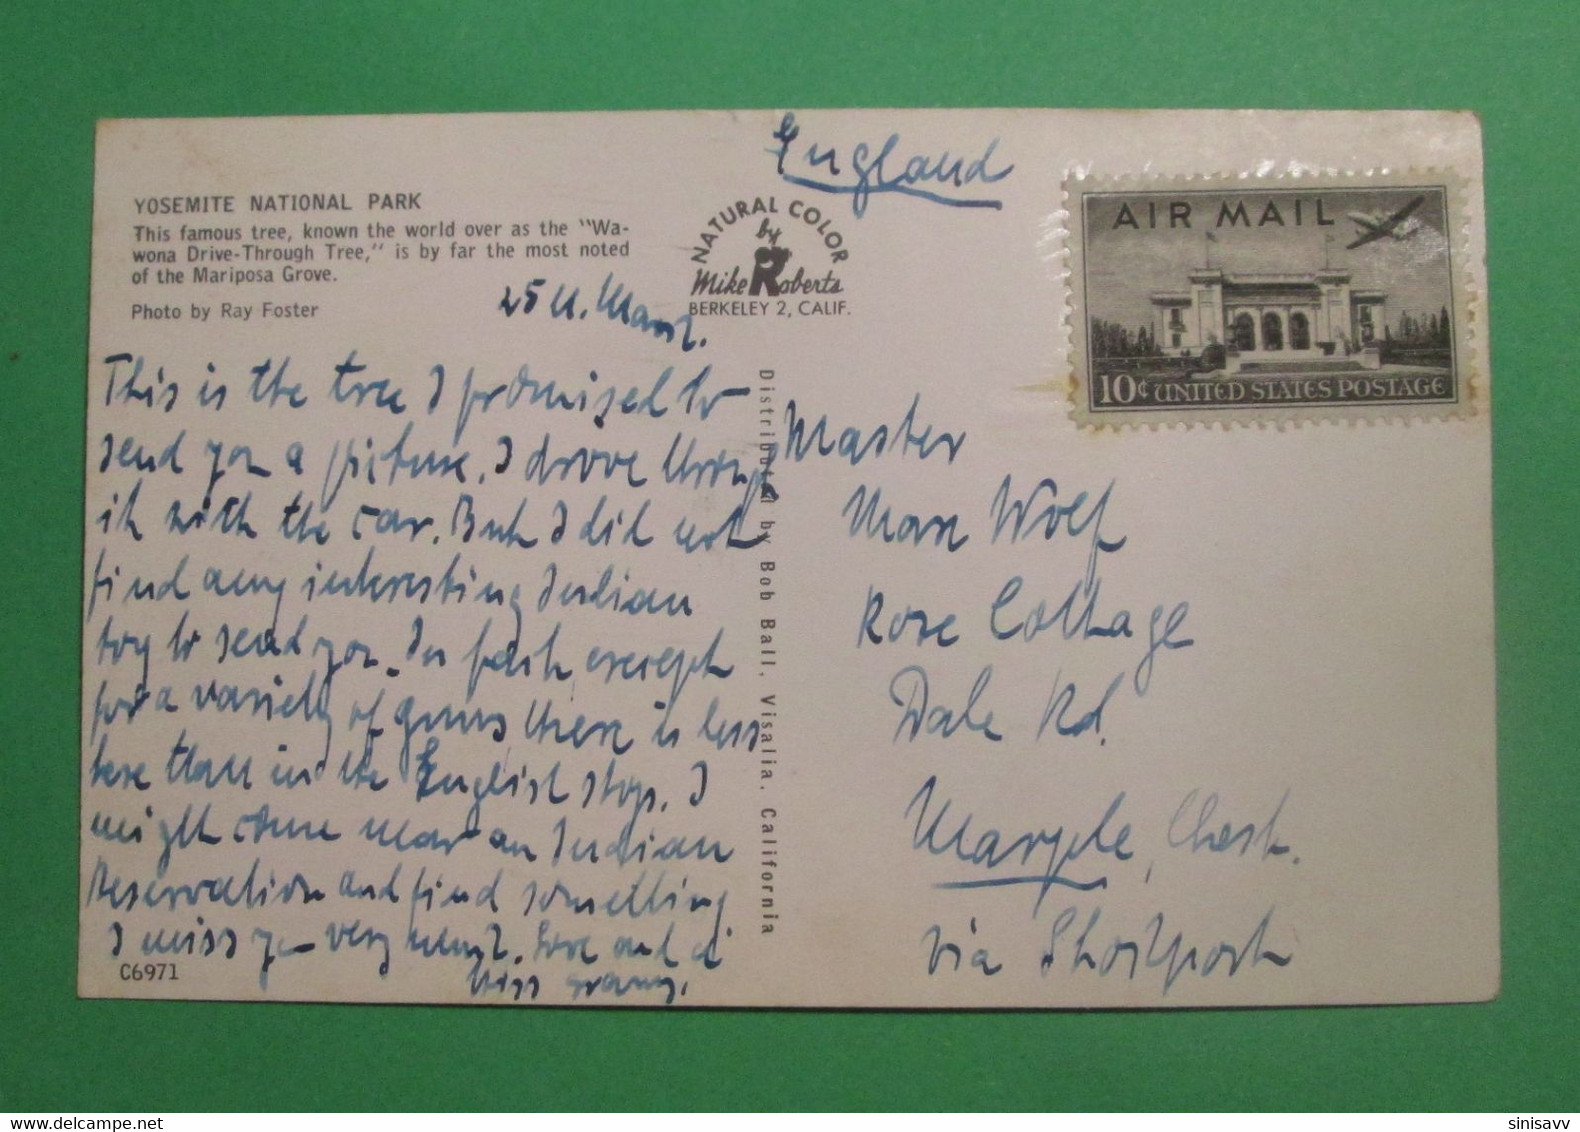 England
YOSEMITE NATIONAL PARK
This famous tree, known the world over as the "Wa-
wona Drive-Through Tree," is by far the most noted
of the Mariposa Grove.
Photo by Ray Foster
NATURAL COLOR
by
Mike Roberts
BERKELEY 2, CALIF.
AIR MAIL
10¢ UNITED STATES POSTAGE
25
This is the tree I promised to
send you a picture. I drove through
it with the car. But I did not
find any interesting Indian
toy to send you. In fact, except
for a variety of guns, there is less
here than in the English shops. I
might come near an Indian
Reservation and find something
I miss you very much. Love and a
kiss Granny.
C6971
Distributed by Bob Ball, Visalia, California
Master
Marc Wolf
Rose Cottage
Dale Rd.
Marple, Chesh.
via Stockport
sinisavv